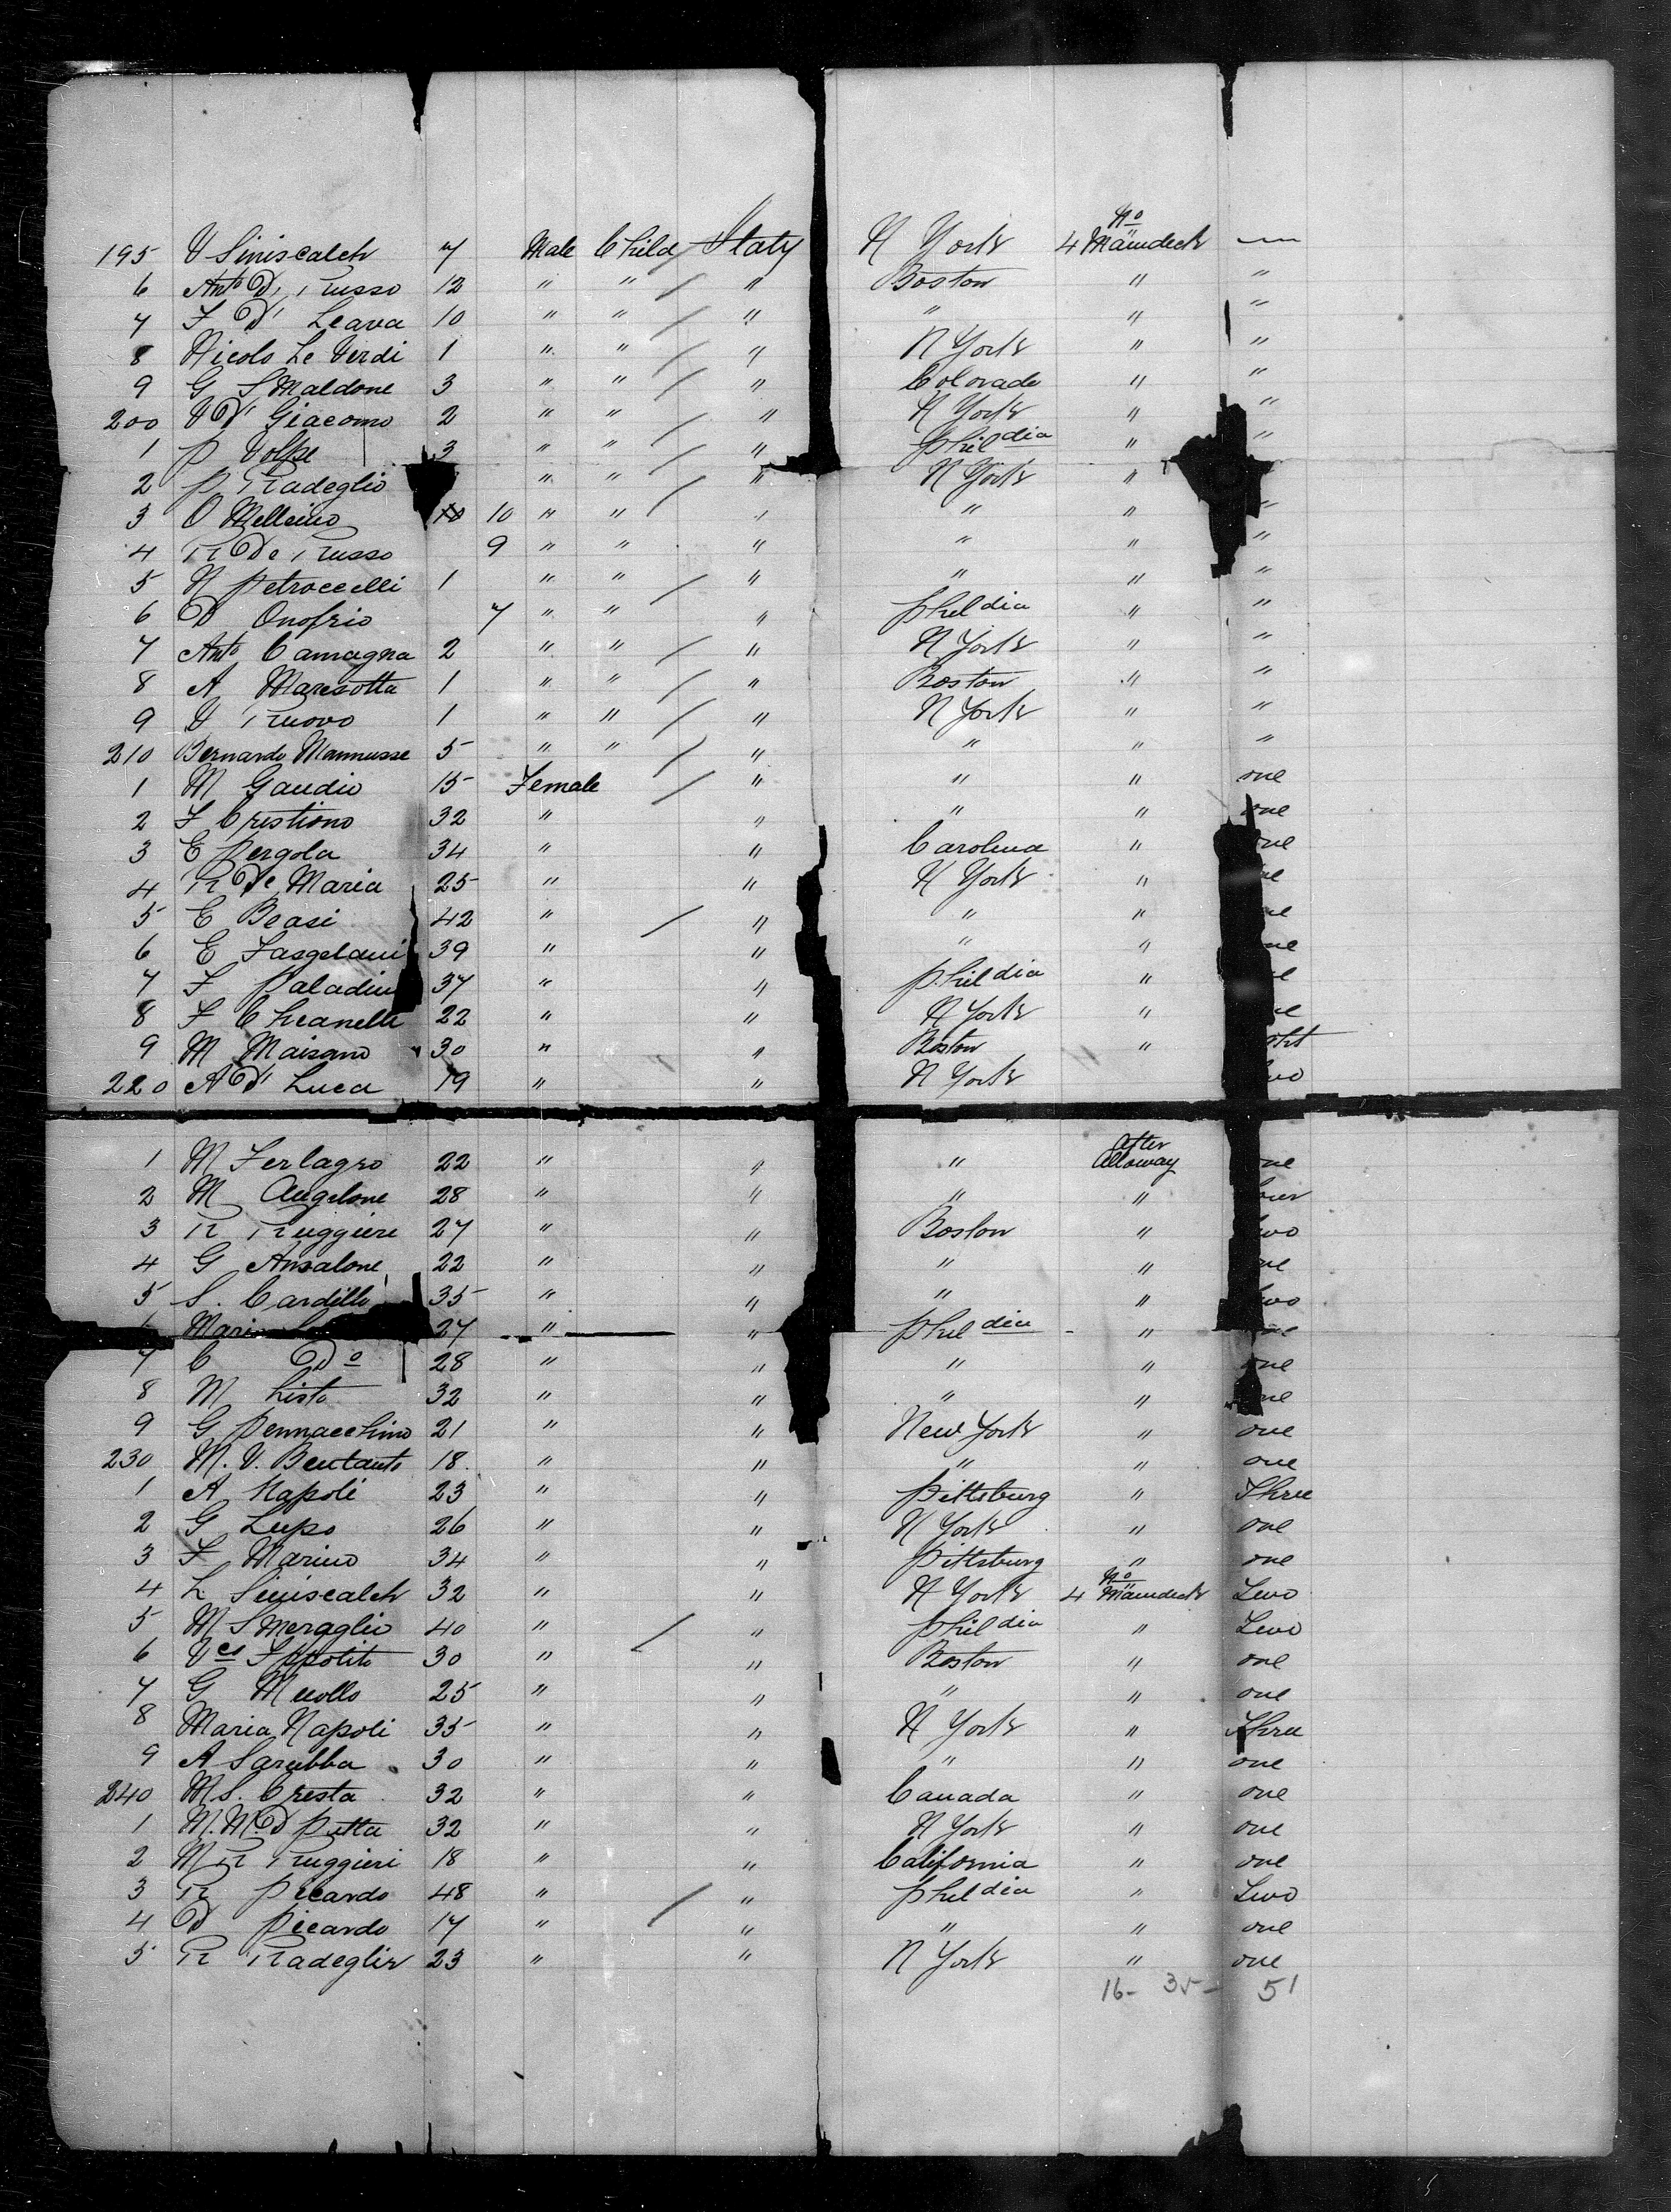 195 V Siniscalch 7 Male Child Italy N York No 4 Maindeck —
6 Anto Di Russo 12 " " / " Boston " "
7 F Di Leava 10 " " / " " " "
8 Nicolo Le Verdi 1 " " / " N York " "
9 G S Maldone 3 " " / " Colorado " "
200 V Di Giacomo 2 " " / " N York " "
1 P Volpe 3 " " / " Phildia " "
2 P Radeglio " " / " N York "
3 O Melleino 10 10 " " / " " " "
4 R De Russo 9 " " " " " "
5 N Petroccelli 1 " " / " " " "
6 D Onofrio 7 " " " Phildia " "
7 Anto Camagna 2 " " / " N York " "
8 A Maresotta 1 " " / " Boston " "
9 V Ruovo 1 " " / " N York " "
210 Bernardo Mannusse 5 " " / " " " "
1 M Gaudio 15 Female / " " " one
2 F Crestiono 32 " " " " one
3 E Pergola 34 " " Carolina " one
4 R De Maria 25 " " N York "
5 E Beasi 42 " / " " "
6 E Fasgelani 39 " " " "
7 F Paladin 37 " " Phildia "
8 F Chranelli 22 " " N York "
9 M Maisano 30 " " Boston "
220 A Di Luca 19 " " N York
1 M Ferlagro 22 " " " After Alloway one
2 M Angelone 28 " " " "
3 R Ruggiere 27 " " Boston "
4 G Ansalone 22 " " " "
5 S. Cardillo 35 " " " "
Mari 27 " " Phildia "
7 C Do 28 " " " " one
8 M Listo 32 " " " " one
9 G Pennacchino 21 " " New York " one
230 M. V. Bentauto 18. " " " " one
1 A Napoli 23 " " Pittsburg " Three
2 G Lupo 26 " " N York " one
3 F Marino 34 " " Pittsburg " one
4 L Siniscalch 32 " " N York No 4 Maindeck Two
5 M Smeraglio 40 " / " Phildia " Two
6 Vce Ippolito 30 " " Boston " one
7 G Mecollo 25 " " " " one
8 Maria Napoli 35 " " N York " Three
9 A Sarubba 30 " " " " one
240 M S. Cresta 32 " " Canada " one
1 M. M. D Petta 32 " " N York " one
2 M R Ruggieri 18 " " California " one
3 R Picardo 48 " / " Phildia " Two
4 D Picardo 17 " " " " one
5 R Radeglir 23 " " N York " one
16 - 35 - 51